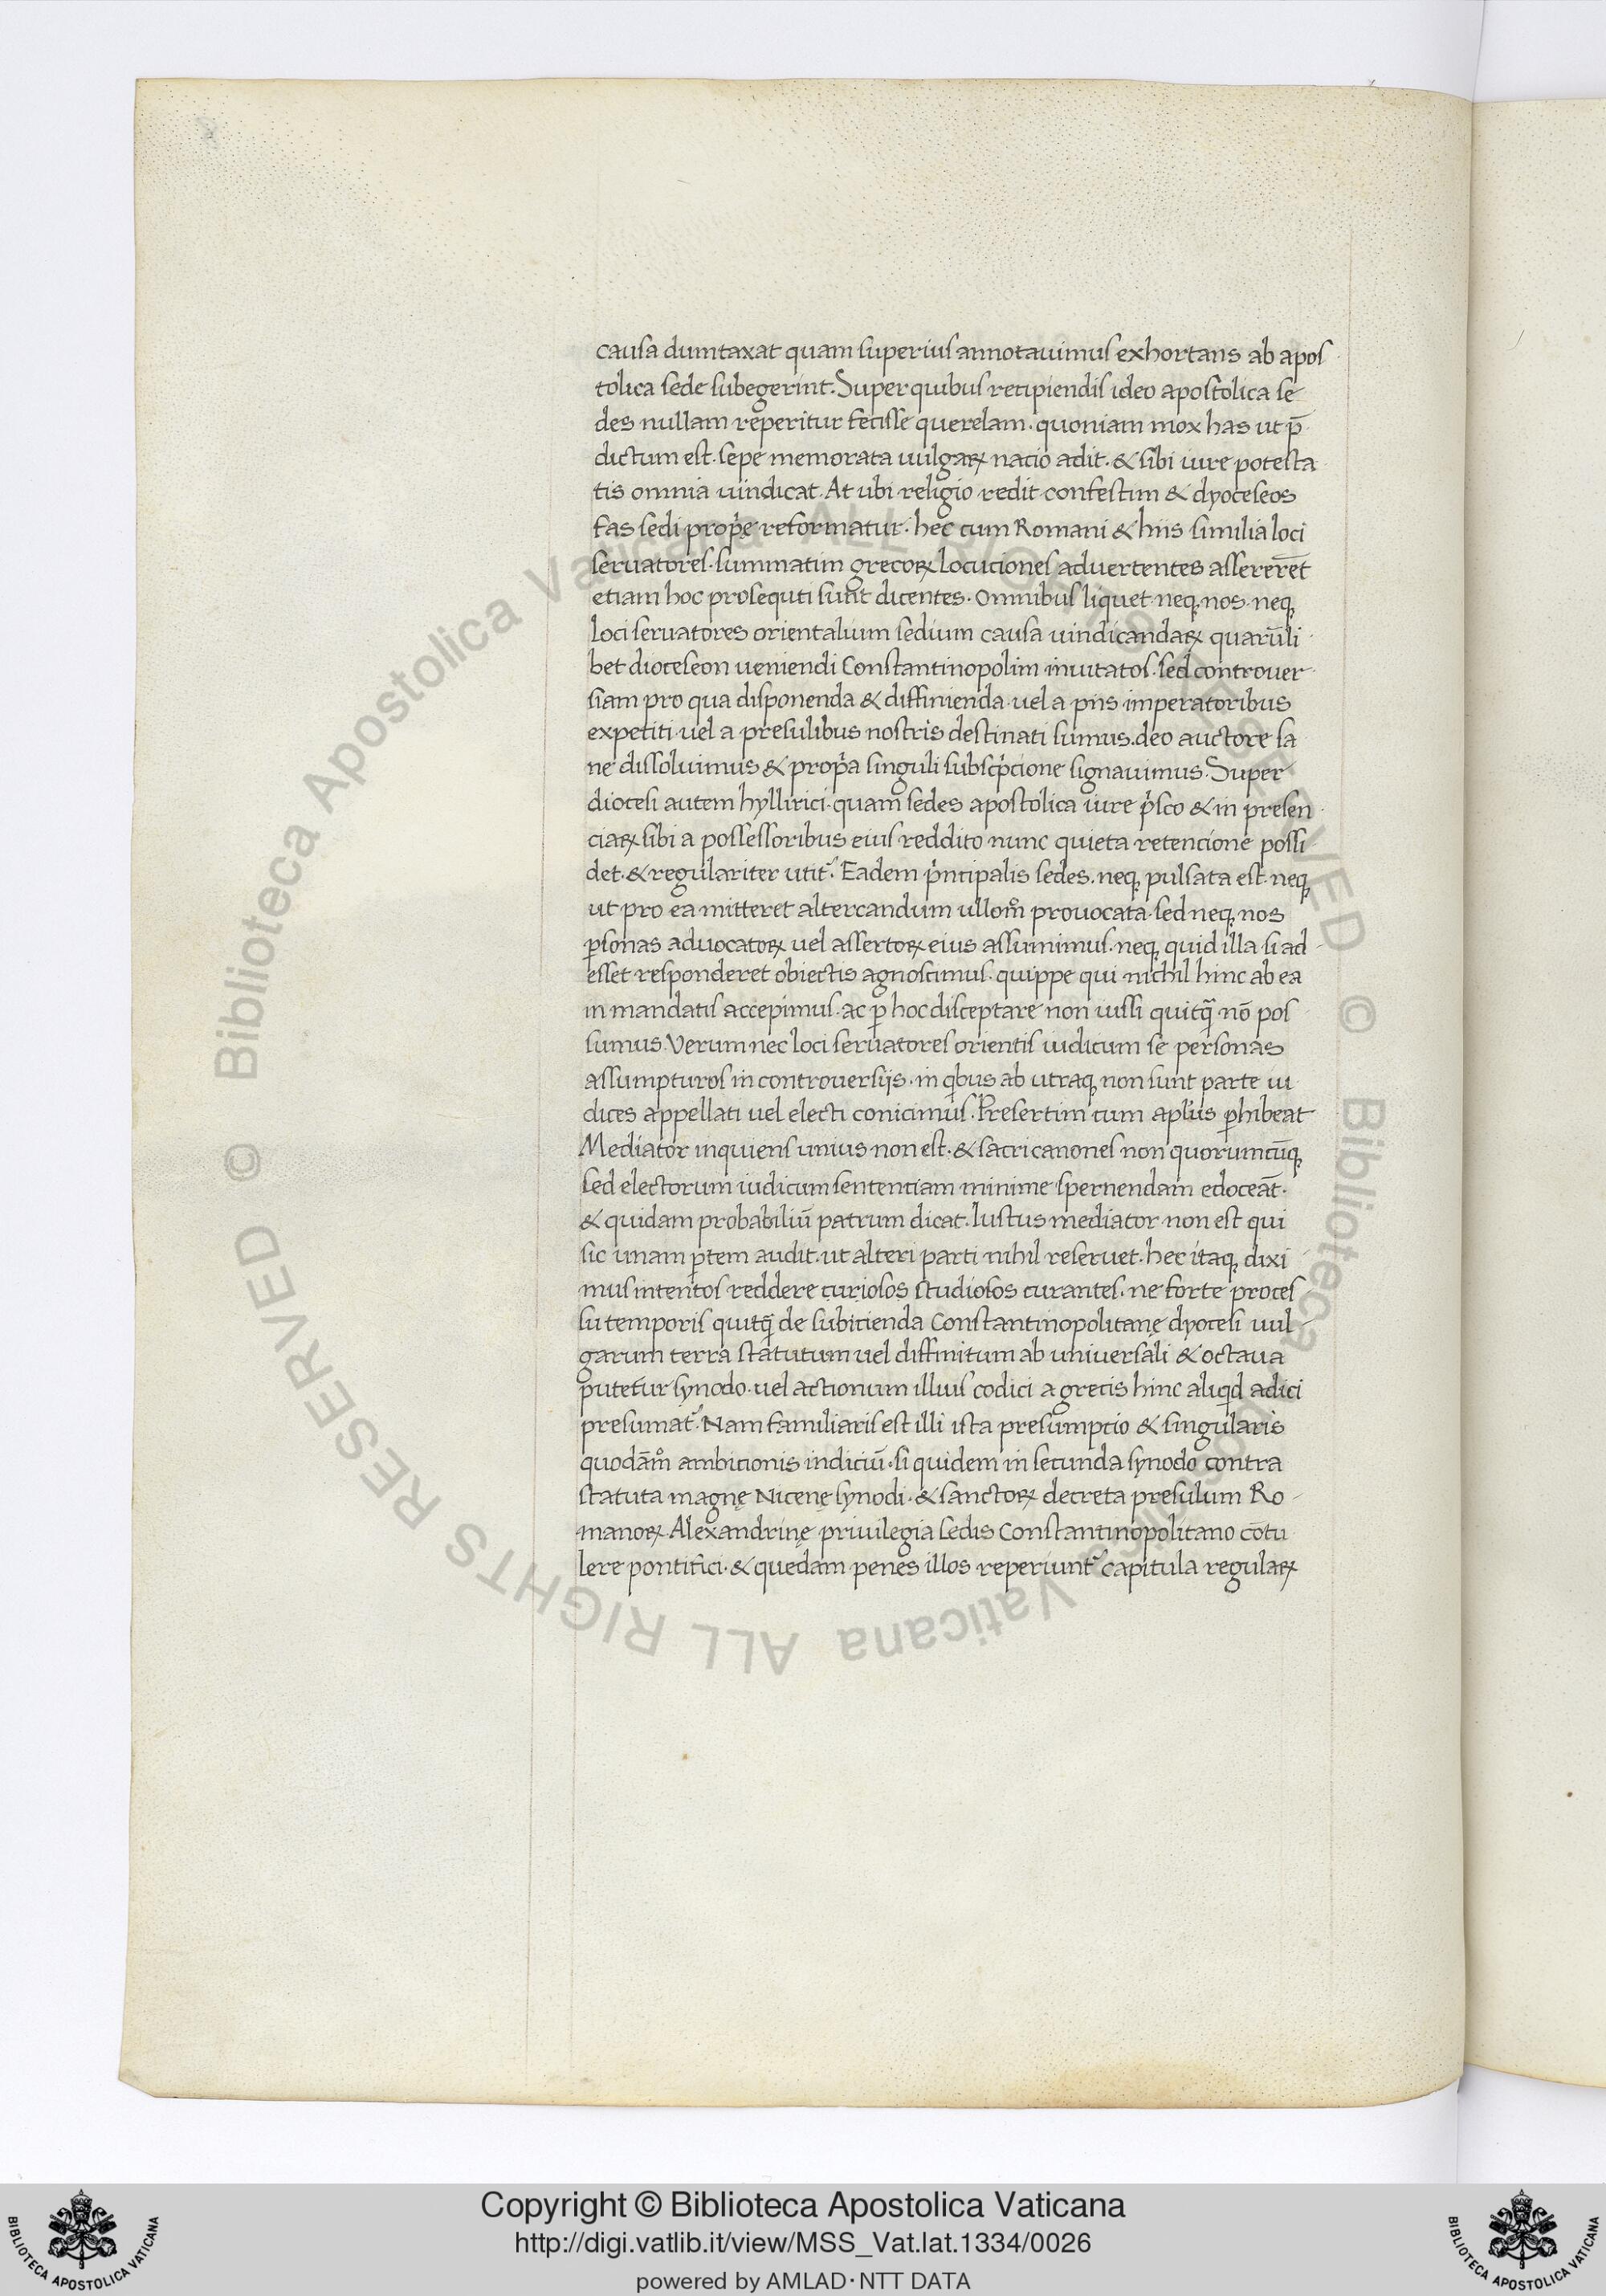 causa dumtaxat quam superius annotauimus exhortans ab apos
tolica sede subegerint. Super quibus recipiendis ideo apostolica se
des nullam reperitur fecisse querelam. quoniam mox has ut p̄
dictum est. sepe memorata uulgaꝝ nacio adit. & sibi iure potesta
tis omnia uindicat. At ubi religio redit confestim & dyoceseos
fas sedi propͥę reformatur. hec cum Romani & hiis similia loci
seruatores. summatim grecoꝝ locuciones aduertentes assererēt
etiam hoc prosequti sunt dicentes. Omnibus liquet neqꝫ nos neqꝫ
loci seruatores orientalium sedium causa uindicandaꝝ quarūli
bet dioceseon ueniendi Constantinopolim inuitatos. sed controuer
siam pro qua disponenda & diffinienda uel a piis imperatoribus
expetiti uel a presulibus nostris destinati sumus. deo auctore sa
ne dissoluimus & propͥa singuli subscpͥcione signauimus. Super
diocesi autem hyllirici. quam sedes apostolica iure pͥsco & in presen
ciaꝝ sibi a possessoribus eius reddito nunc quieta retencione possi
det. & regulariter utit᷑. Eadem pͥncipalis sedes. neqꝫ pulsata est. neqꝫ
ut pro ea mitteret altercandum ullom̊ prouocata. sed neqꝫ nos
ꝑsonas aduocatoꝝ uel assertoꝝ eius assumimus. neqꝫ quid illa si ad
esset responderet obiectis agnoscimus. quippe qui nichil hinc ab ea
in mandatis accepimus. ac ꝑ hoc disceptare non iussi quicq̄ nō pos
sumus. Verum nec loci seruatores orientis iudicum se personas
assumpturos in controuersijs. in qͥbus ab utraqꝫ non sunt parte iu
dices appellati uel electi conicimus. Presertim cum apl̄us ꝑhibeat
Mediator inquiens unius non est. & sacri canones non quorumcūqꝫ
sed electorum iudicum sentenciam minime spernendam edoceāt.
& quidam probabiliū patrum dicat. Iustus mediator non est qui
sic unam ꝑtem audit. ut alteri parti nihil reseruet. hec itaqꝫ dixi
mus intentos reddere curiosos studiosos curantes. ne forte proces
su temporis quicq̄ de subicienda Constantinopolitanę dyocesi uul
garum terra statutum uel diffinitum ab uniuersali & octaua
putetur synodo. uel actionum illius codici a grecis hinc aliqͥd adici
presumat᷑. Nam familiaris est illi ista presumptio & singularis
quodām̊ ambicionis indiciū. si quidem in secunda synodo contra
statuta magnę Nicenę synodi. & sanctoꝝ decreta presulum Ro
manoꝝ Alexandrinę priuilegia sedis Constantinopolitano cōtu
lere pontifici. & quedam penes illos reperiunt᷑ capitula regulaꝝ
© Biblioteca Apostolica Vaticana ALL RIGHTS RESERVED
© Biblioteca Apostolica Vaticana ALL RIGHTS RESERVED
Copyright © Biblioteca Apostolica Vaticana
http://digi.vatlib.it/view/MSS_Vat.lat.1334/0026
powered by AMLAD·NTT DATA
BIBLIOTECA APOSTOLICA VATICANA
BIBLIOTECA APOSTOLICA VATICANA